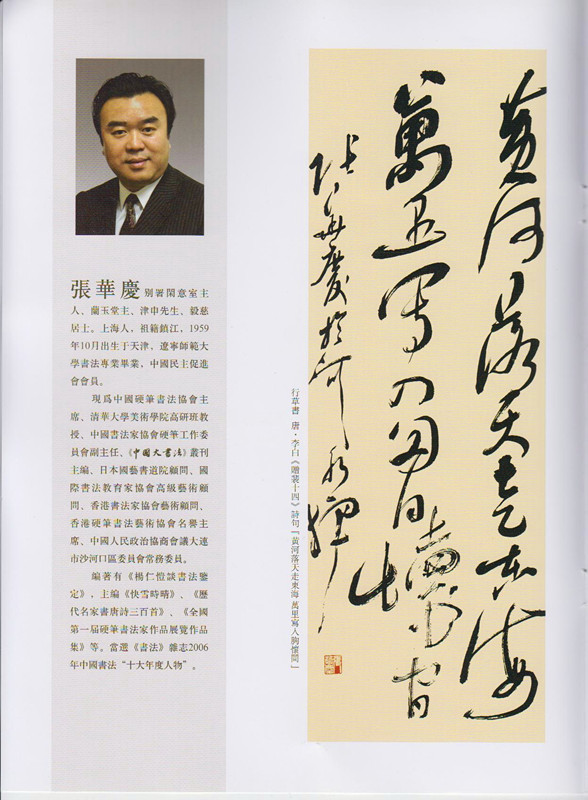 張華慶 別署閑意室主
人、蘭玉堂主、津申先生、毅慈
居士。上海人，祖籍鎮江，1959
年10月出生于天津，遼寧師範大
學書法專業畢業，中國民主促進
會會員。
現爲中國硬筆書法協會主
席、清華大學美術學院高研班教
授、中國書法家協會硬筆工作委
員會副主任、《中國大書法》叢刊
主編、日本國藝書道院顧問、國
際書法教育家協會高級藝術顧
問、香港書法家協會藝術顧問、
香港硬筆書法藝術協會名譽主
席、中國人民政治協商會議大連
市沙河口區委員會常務委員。
編著有《楊仁愷談書法鑒
定》，主編《快雪時晴》、《歷
代名家書唐詩三百首》、《全國
第一届硬筆書法家作品展覽作品
集》等。當選《書法》雜志2006
年中國書法“十大年度人物”。
黃河落天走東海
萬里寫入胸懷間
張華慶於
行草書 唐·李白《贈裴十四》詩句「黃河落天走東海 萬里寫入胸懷間」